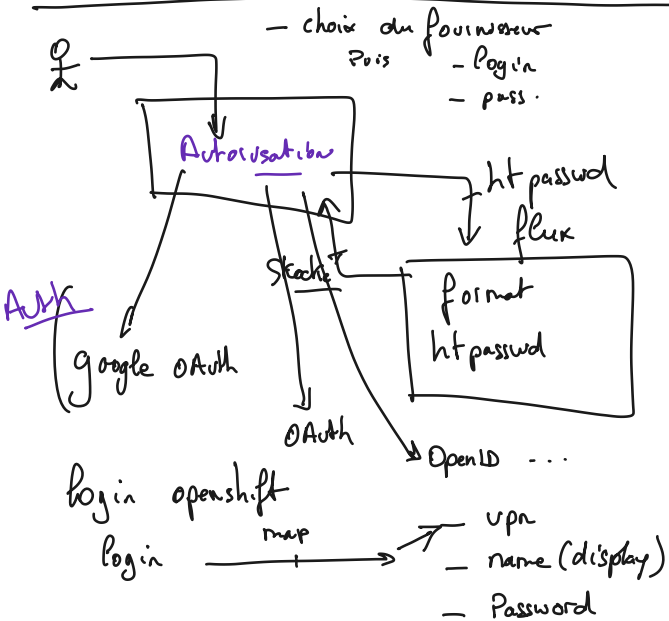 - choix du fournisseur
Puis - login
- pass.
Autorisation
htpasswd
flux
Stocke
format
htpasswd
Auth
google OAuth
OAuth
OpenID ...
login openshift
map
login
- upn
- name (display)
- Password